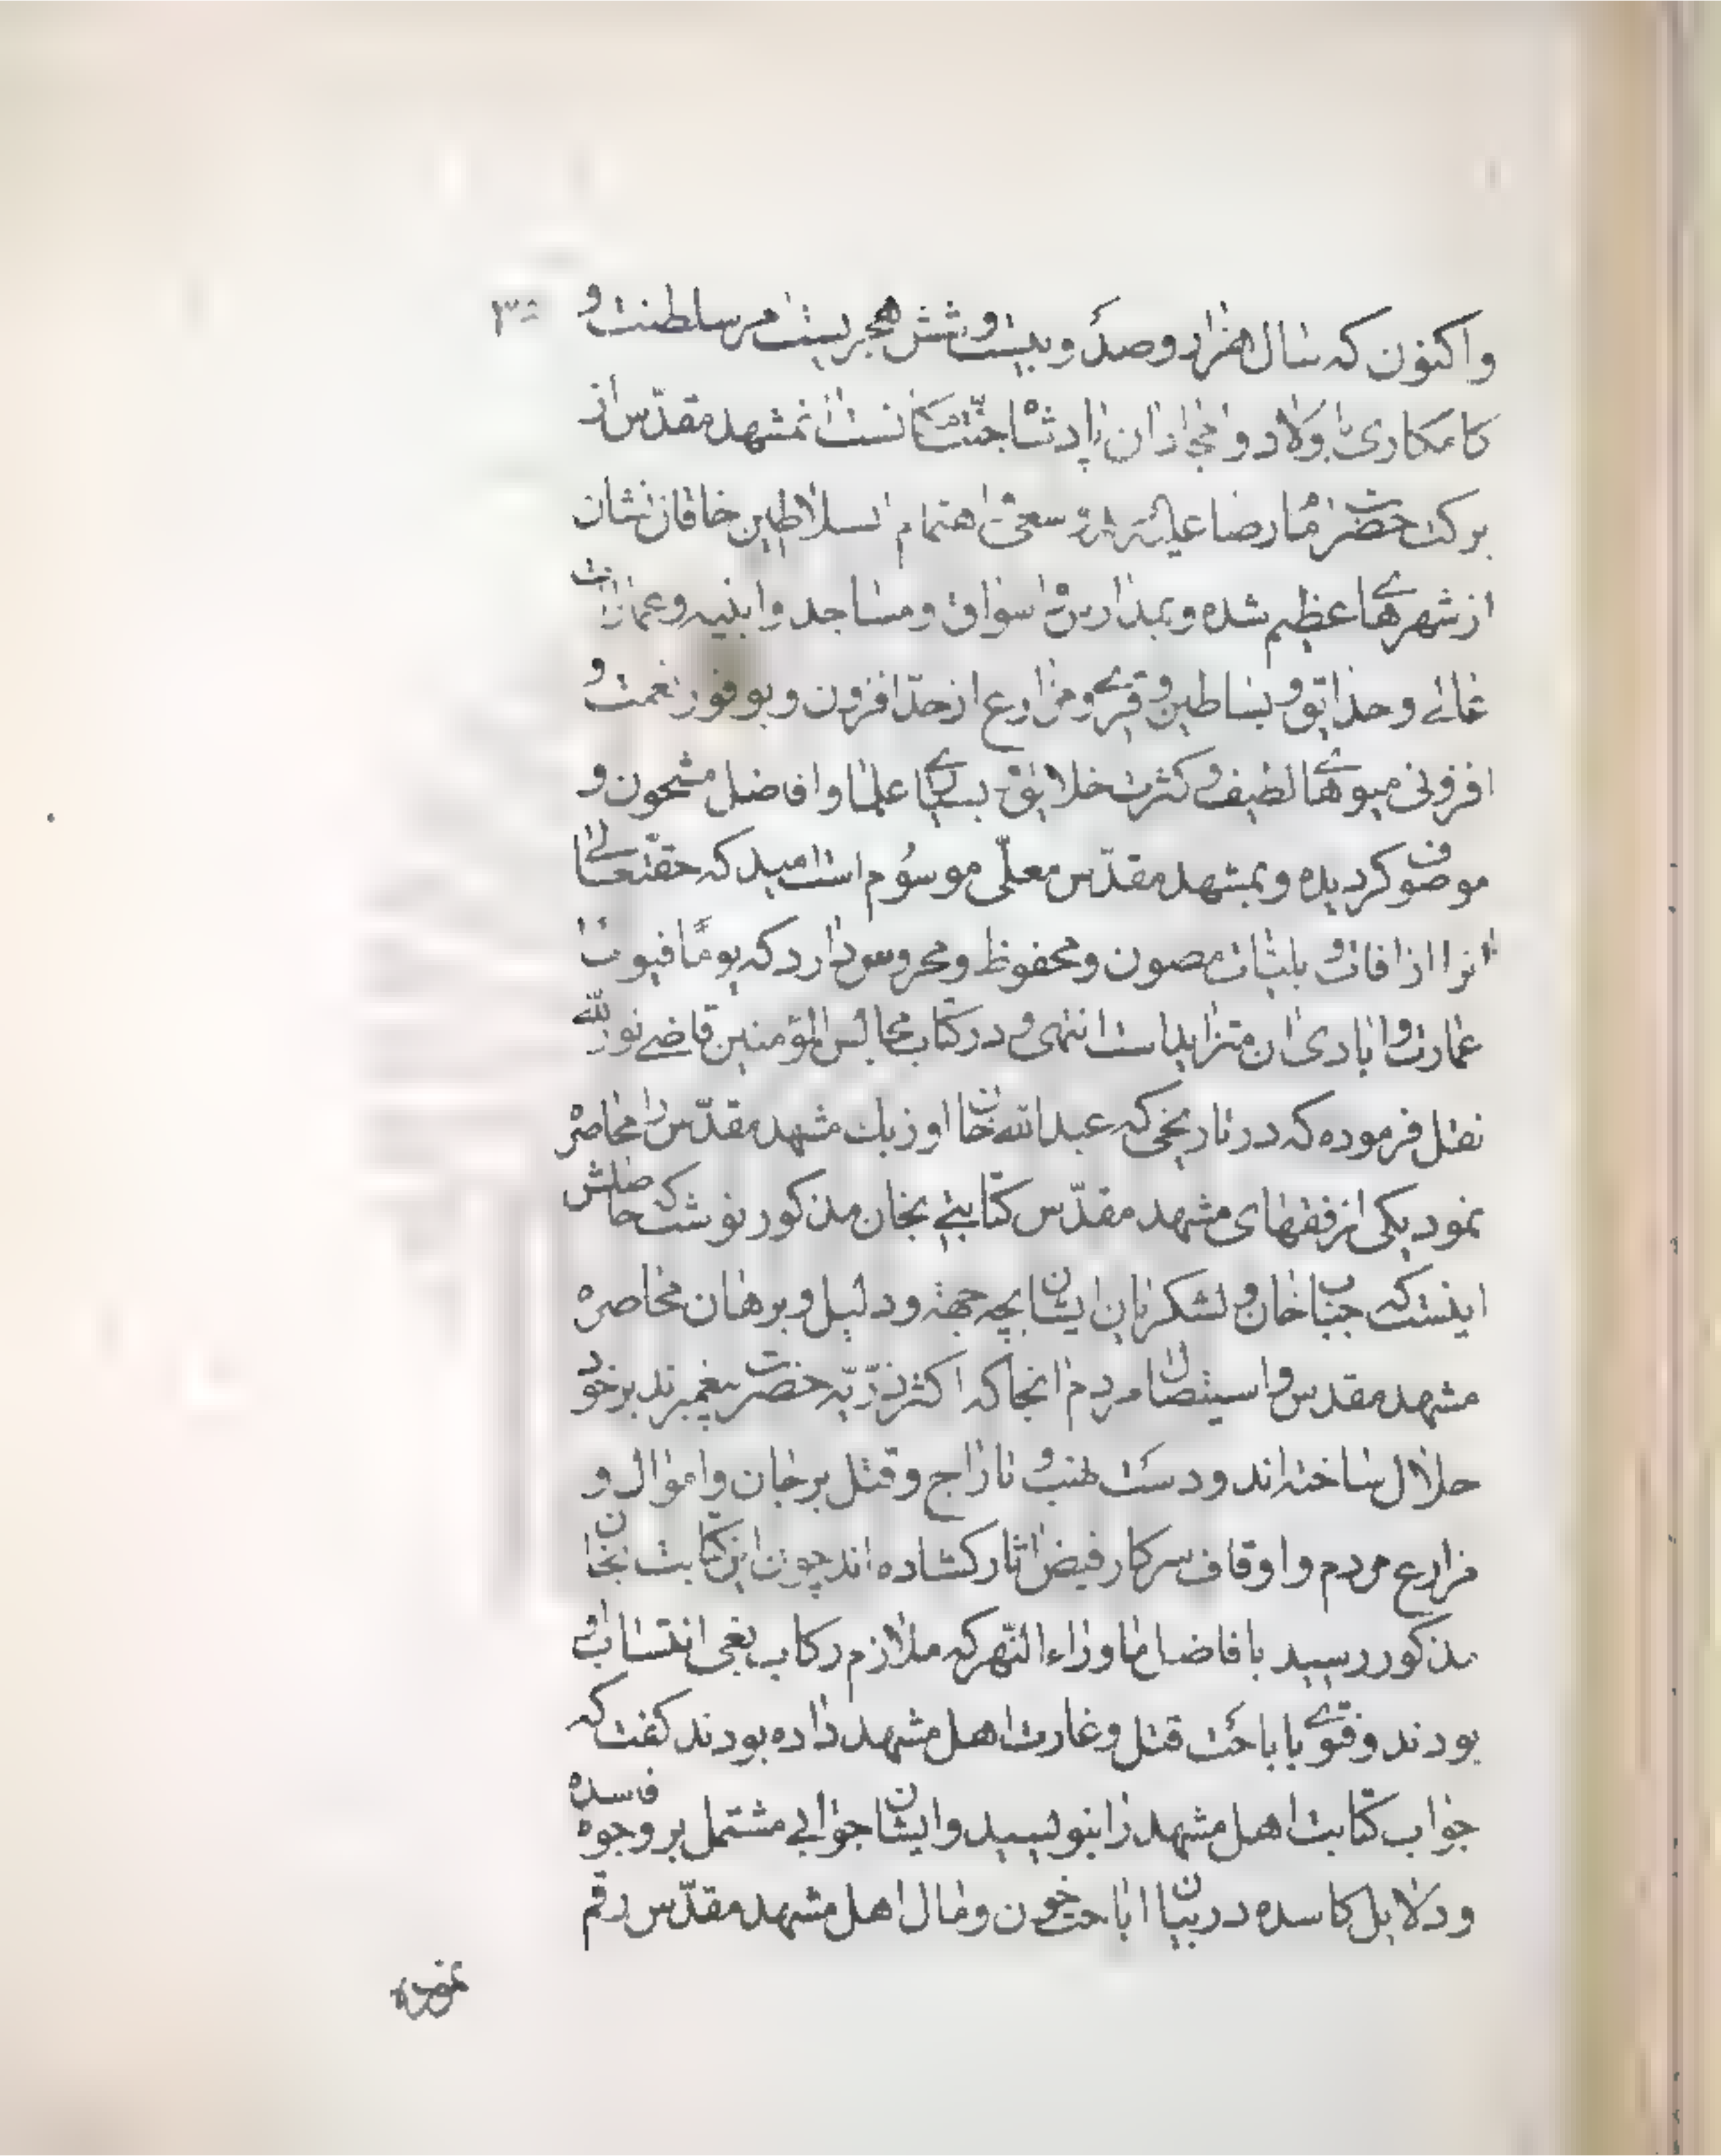 واکنون که سال هزار و صد و بیست و شش هجریست سریر سلطنت و
کامکاری با ولاد و امجاد ان پادشاه جنت مکانست مشهد مقدّس از
برکت حضرت امام رضا علیه و سعی و اهتمام سلاطین خاقان نشان
از شهرهای عظیم شده و بمدارس و اسواق و مساجد و ابنیه و عمارات
عالی و حدایق و بساطین و قری و مزارع از حدّ افزون و بوفور نعمت و
افزونی میوهای لطیف و کثرت خلایق و بسیاری علما و افاضل مشحون و
موصوف کردیده و بمشهد مقدّس معلّی موسُوم است امید که حقتعالی
انرا از افات و بلیّات مصون و محفوظ و محروس دارد که یومًا فیومًا
عمارت و ابادی ان متزاید است انتهی و در کتاب مجالس المؤمنین قاضی نورالله
نقل فرموده که در تاریخی که عبدالله خان اوزبک مشهد مقدّس را محاصره
نمود یکی از فقهای مشهد مقدّس کتابتی بخان مذکور نوشت که حاصلش
اینست که جناب خان و لشکریان ایشان بچه جهة و دلیل و برهان محاصره
مشهد مقدس و استیصال مردم انجا که اکثر ذرّیّه حضرت پیغمبرند برخود
حلال ساخته اند و دست نهب و تاراج و قتل بر جان و اموال و
مزارع مردم و اوقاف سرکار فیض اثار کشاده اند چون این کتابت بخان
مذکور رسید با فاضل ماوراء النّهر که ملازم رکاب بغی انتساب او
بودند و فتوی با باحت قتل و غارت اهل مشهد داده بودند کفت که
جواب کتابت اهل مشهد را بنویسید و ایشان جوابی مشتمل بر وجوه فاسده
و دلایل کاسده در بیان اباحت خون و مال اهل مشهد مقدّس رقم
نمودند